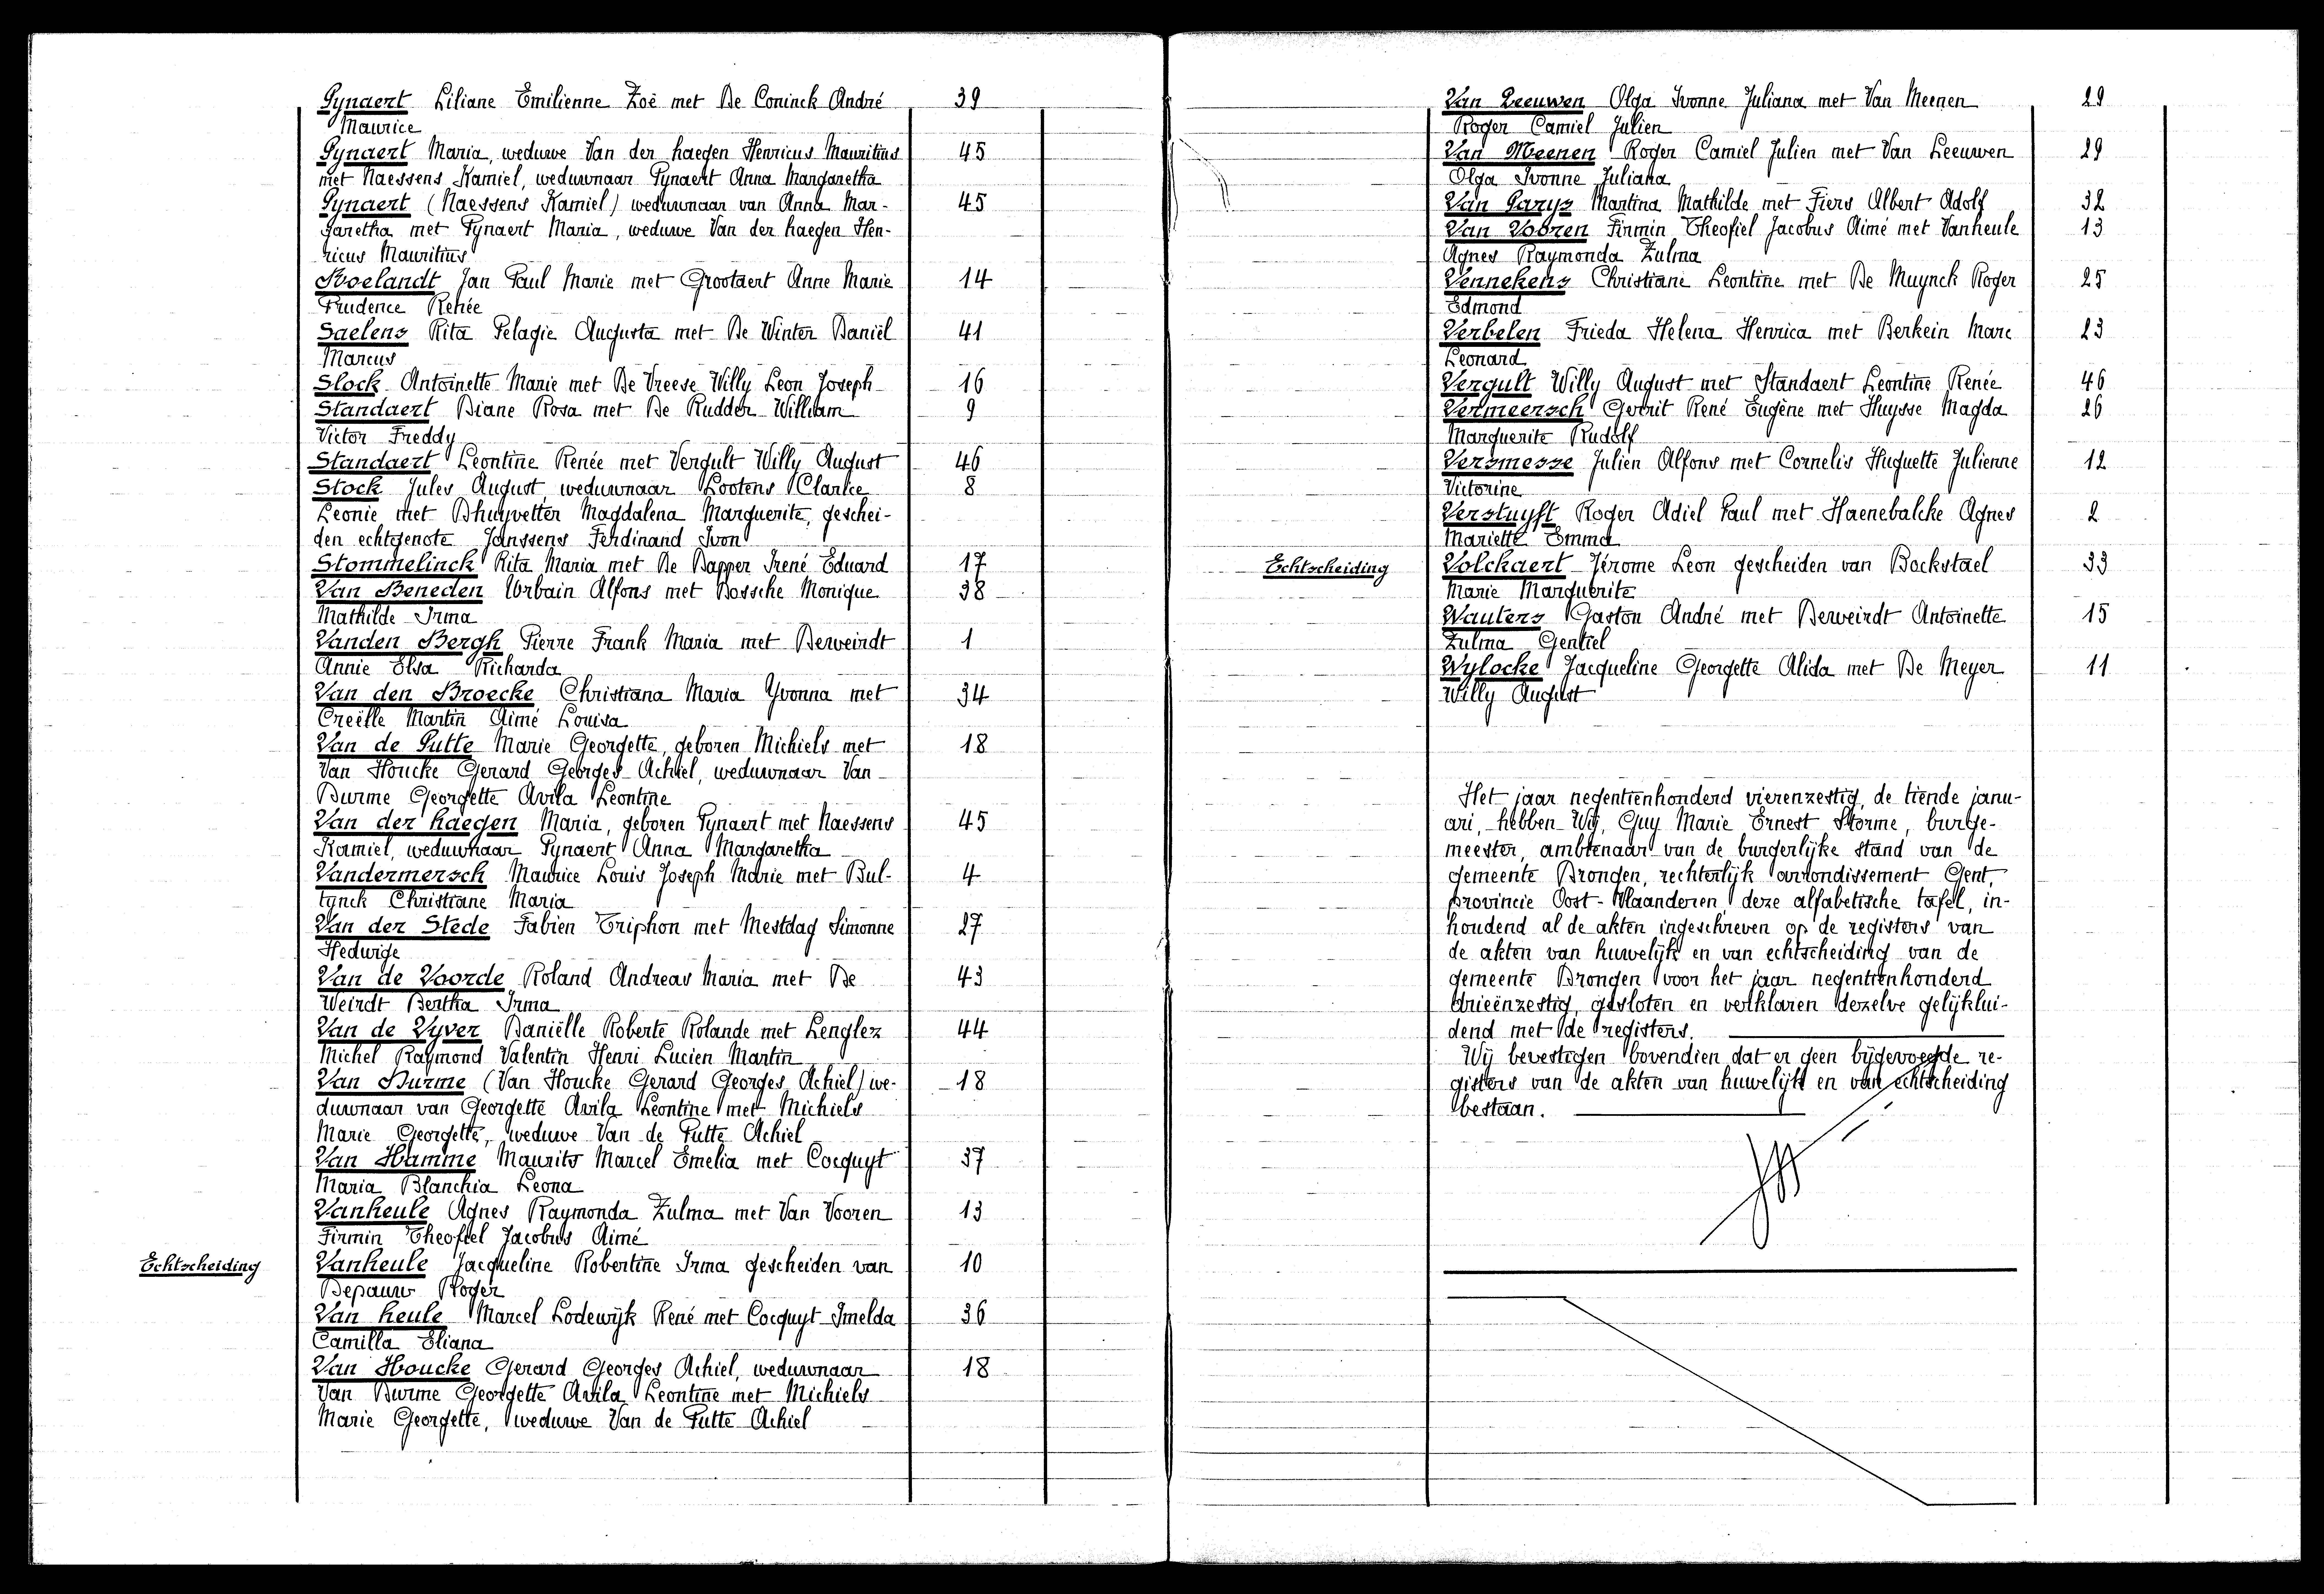 Pynaert Liliane Emilienne Zoë met De Coninck André 39
Maurice
Pynaert Maria, weduwe Van der haegen Henricus Mauritius 45
met Naessens Kamiel, weduwnaar Pynaert Anna Margaretha
Pynaert (Naessens Kamiel) weduwnaar van Anna Mar- 45
garetha met Pynaert Maria, weduwe Van der haegen Hen-
ricus Mauritius
Roelandt Jan Paul Marie met Grootaert Anne Marie 14
Prudence Renée
Saelens Rita Pelagie Augusta met De Winter Daniël 41
Marcus
Slock Antoinette Marie met De Vreese Willy Leon Joseph 16
Standaert Diane Rosa met De Rudder William 9
Victor Freddy
Standaert Leontine Renée met Vergult Willy August 46
Stock Jules August, weduwnaar Lootens Clarice 8
Leonie met Dhuyvetter Magdalena Marguerite, geschei-
den echtgenote Janssens Ferdinand Ivon
Stommelinck Rita Maria met De Dapper Irené Eduard 17
Van Beneden Urbain Alfons met Bossche Monique 38
Mathilde Irma
Vanden Bergh Pierre Frank Maria met Derweirdt 1
Annie Elsa Richarda
Van den Broecke Christiana Maria Yvonna met 34
Creëlle Martin Aimé Louisa
Van de Putte Marie Georgette, geboren Michiels met 18
Van Houcke Gerard Georges Achiel, weduwnaar Van
Durme Georgette Avila Leontine
Van der haegen Maria, geboren Pynaert met Naessens 45
Kamiel, weduwnaar Pynaert Anna Margaretha
Vandermersch Maurice Louis Joseph Marie met Bul- 4
tynck Christiane Maria
Van der Stede Fabien Triphon met Mestdag Simonne 27
Hedwige
Van de Voorde Roland Andreas Maria met De 43
Weirdt Bertha Irma
Van de Vyver Daniëlle Roberte Rolande met Lenglez 44
Michel Raymond Valentin Henri Lucien Martin
Van Durme (Van Houcke Gerard Georges Achiel) we- 18
duwnaar van Georgette Avila Leontine met Michiels
Marie Georgette, weduwe Van de Putte Achiel
Van Hamme Maurits Marcel Emelia met Cocquyt 37
Maria Blanchia Leona
Vanheule Agnes Raymonda Zulma met Van Vooren 13
Firmin Theofiel Jacobus Aimé
Echtscheiding Vanheule Jacqueline Robertine Irma gescheiden van 10
Depauw Roger
Van heule Marcel Lodewijk René met Cocquyt Imelda 36
Camilla Eliana
Van Houcke Gerard Georges Achiel, weduwnaar 18
Van Durme Georgette Avila Leontine met Michiels
Marie Georgette, weduwe Van de Putte Achiel
Van Leeuwen Olga Ivonne Juliana met Van Meenen 29
Roger Camiel Julien
Van Meenen Roger Camiel Julien met Van Leeuwen 29
Olga Ivonne Juliana
Van Parys Martina Mathilde met Fiers Albert Adolf 32
Van Vooren Firmin Theofiel Jacobus Aimé met Vanheule 13
Agnes Raymonda Zulma
Vennekens Christiane Leontine met De Muynck Roger 25
Edmond
Verbelen Frieda Helena Henrica met Berkein Marc 23
Leonard
Vergult Willy August met Standaert Leontine Renée 46
Vermeersch Gerrit René Eugène met Huysse Magda 26
Marguerite Rudolf
Versmesse Julien Alfons met Cornelis Huguette Julienne 12
Victorine
Verstuyft Roger Adiel Paul met Haenebalcke Agnes 2
Mariette Emma
Echtscheiding Volckaert Jérome Leon gescheiden van Bockstael 33
Marie Marguerite
Wauters Gaston André met Derweirdt Antoinette 15
Zulma Gentiel
Wylocke Jacqueline Georgette Alida met De Meyer 11
Willy August
Het jaar negentienhonderd vierenzestig, de tiende janu-
ari, hebben Wij, Guy Marie Ernest Storme, burge-
meester, ambtenaar van de burgerlijke stand van de
gemeente Drongen, rechterlijk arrondissement Gent,
provincie Oost-Vlaanderen, deze alfabetische tafel, in-
houdend al de akten ingeschreven op de registers van
de akten van huwelijk en van echtscheiding van de
gemeente Drongen voor het jaar negentienhonderd
drieënzestig, gesloten en verklaren dezelve gelijklui-
dend met de registers.
Wij bevestigen bovendien dat er geen bijgevoegde re-
gisters van de akten van huwelijk en van echtscheiding
bestaan.